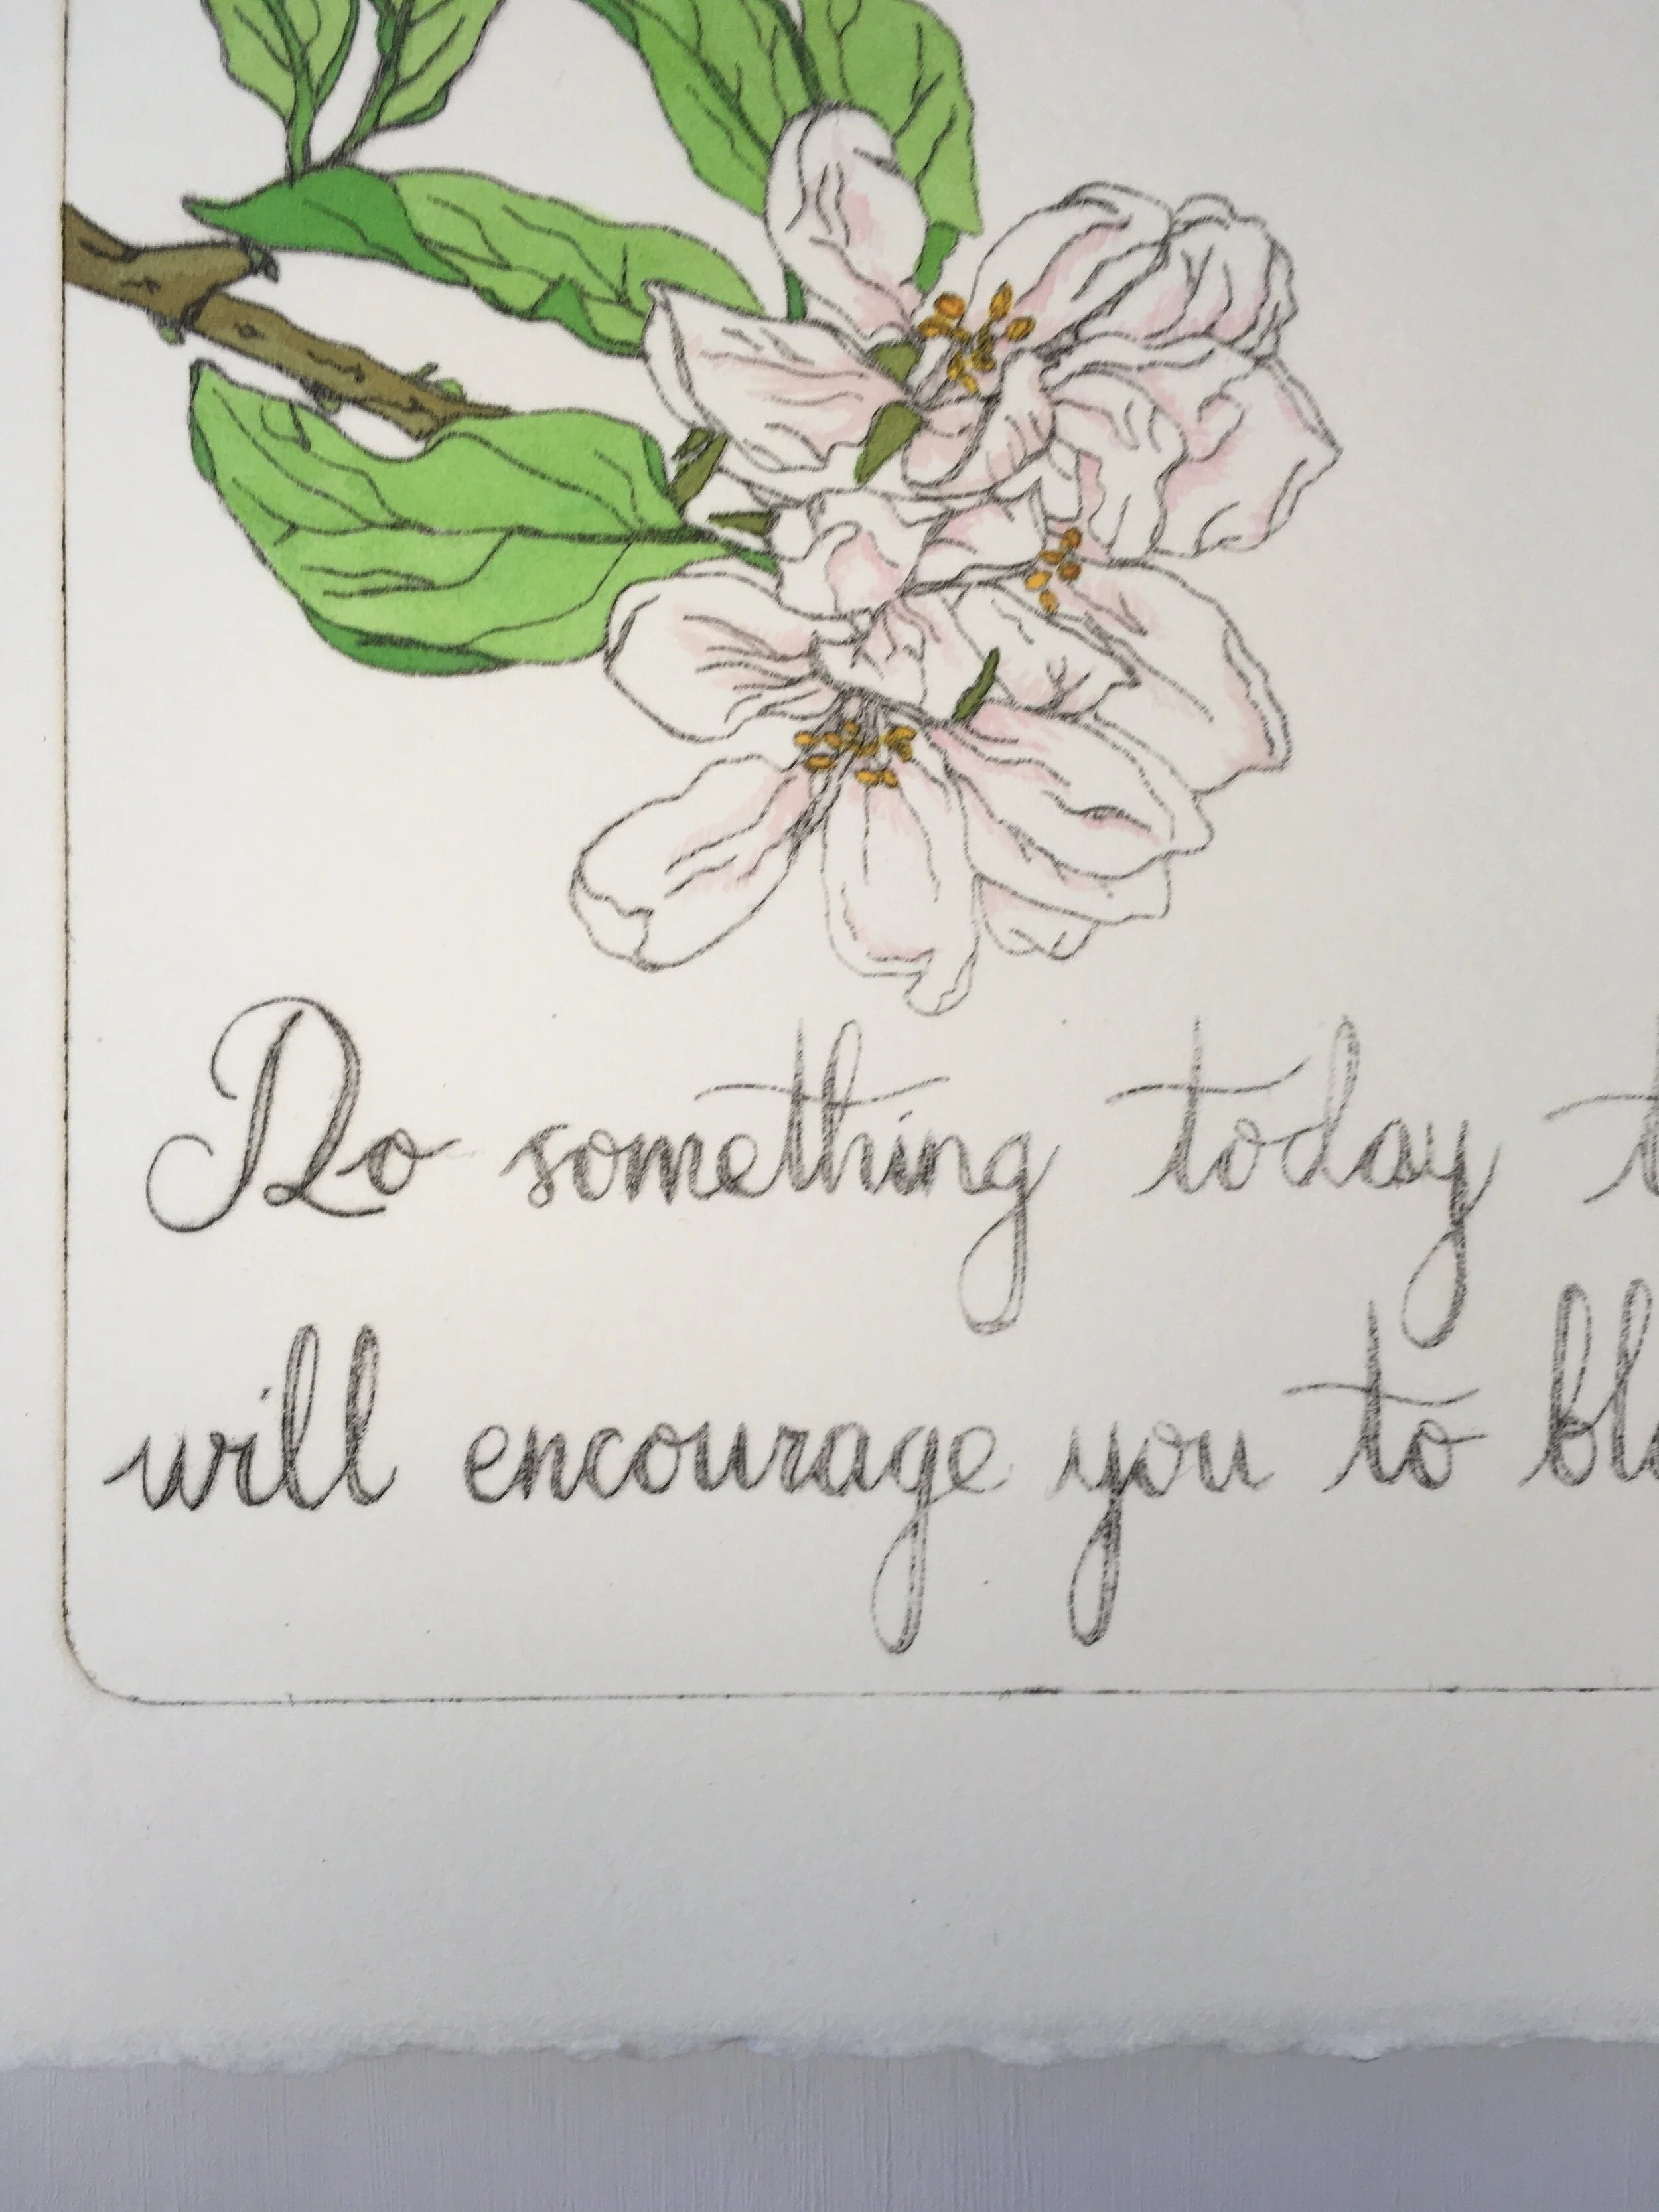 Do something today t
will encourage you to blo